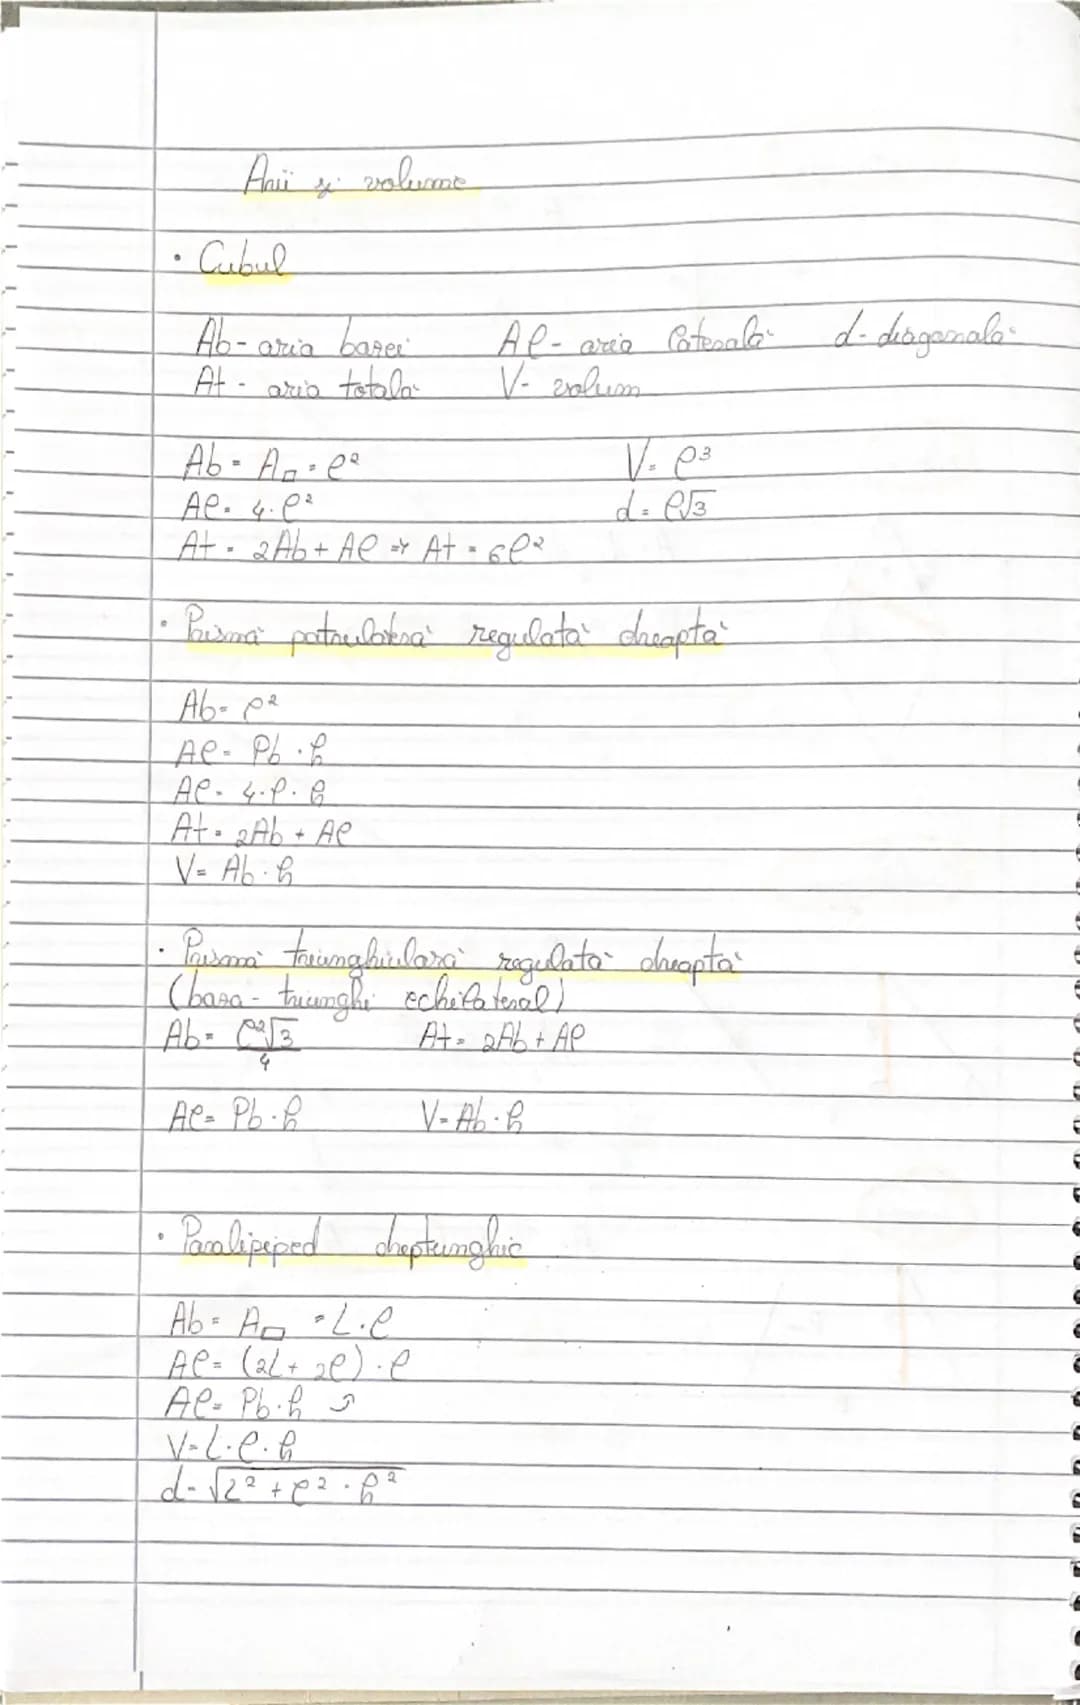 Arii și volume
• Cubul
Ab - aria bazei Al - aria laterală d - diagonală
At - aria totală V - volum
Ab = A□ = l² V = l³
Al = 4·l² d = l√3
At = 2Ab + Al => At = 6l²
• Prismă patrulateră regulată dreaptă
Ab = l²
Al = Pb · h
Al = 4·l·h
At = 2Ab + Al
V = Ab · h
• Prismă triunghiulară regulată dreaptă
(baza - triunghi echilateral)
Ab = l²√3/4 At = 2Ab + Al
Al = Pb · h V = Ab · h
• Paralipiped dreptunghic
Ab = A▭ = L·l
Al = (2L + 2l) · l
Al = Pb · h
V = L·l·h
d = √L² + l² · h²